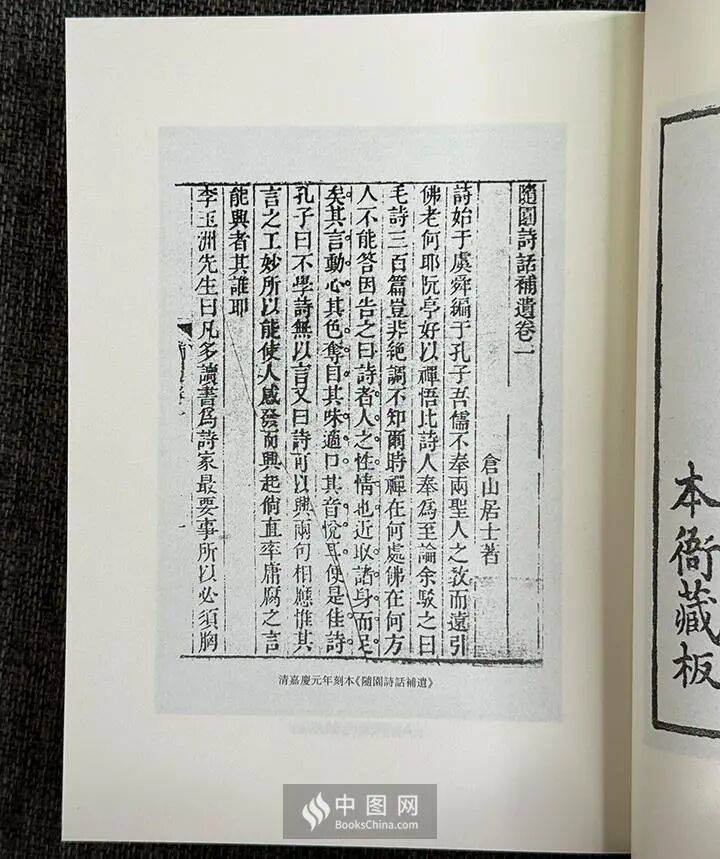 本衙藏板
隨園詩話補遺卷一
倉山居士著
詩始于虞舜編于孔子吾儒不奉兩聖人之敎而遠引
佛老何耶阮亭好以禪悟比詩人奉爲至論余駁之曰
毛詩三百篇豈非絶調不知爾時禪在何處佛在何方
人不能答因告之曰詩者人之性情也近取諸身而足
矣其言動心其色奪目其味適口其音悅耳便是佳詩
孔子曰不學詩無以言又曰詩可以興兩句相應惟其
言之工妙所以能使人感發而興起倘直率庸腐之言
能興者其誰耶
李玉洲先生曰凡多讀書爲詩家最要事所以必須胸
清嘉慶元年刻本《隨園詩話補遺》
中图网
BooksChina.com